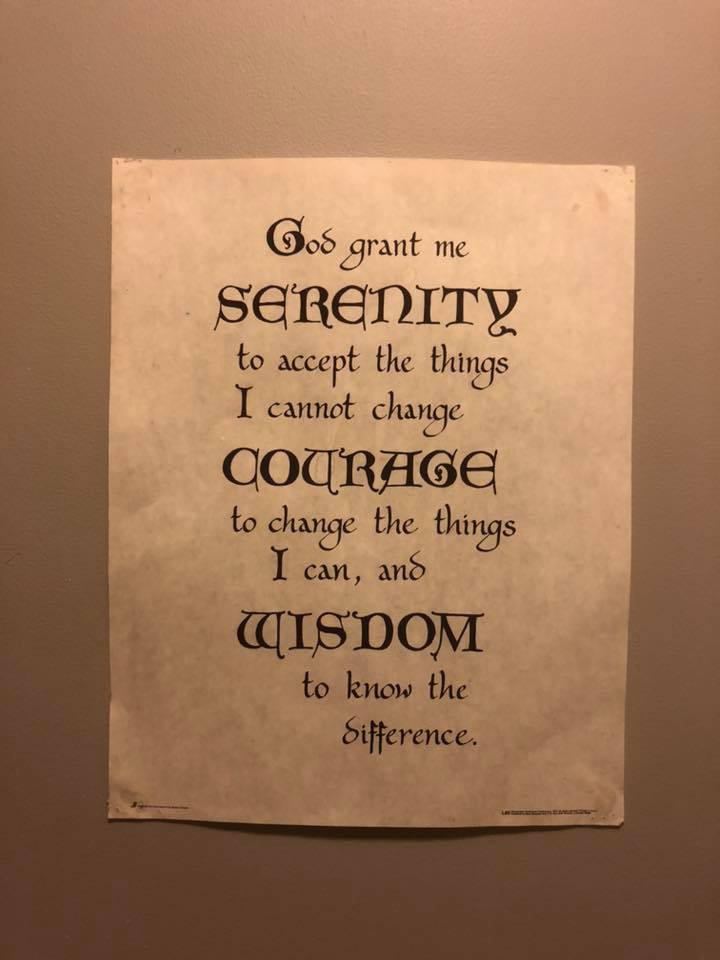 God grant me
SERENITY
to accept the things
I cannot change
COURAGE
to change the things
I can, and
WISDOM
to know the
difference.